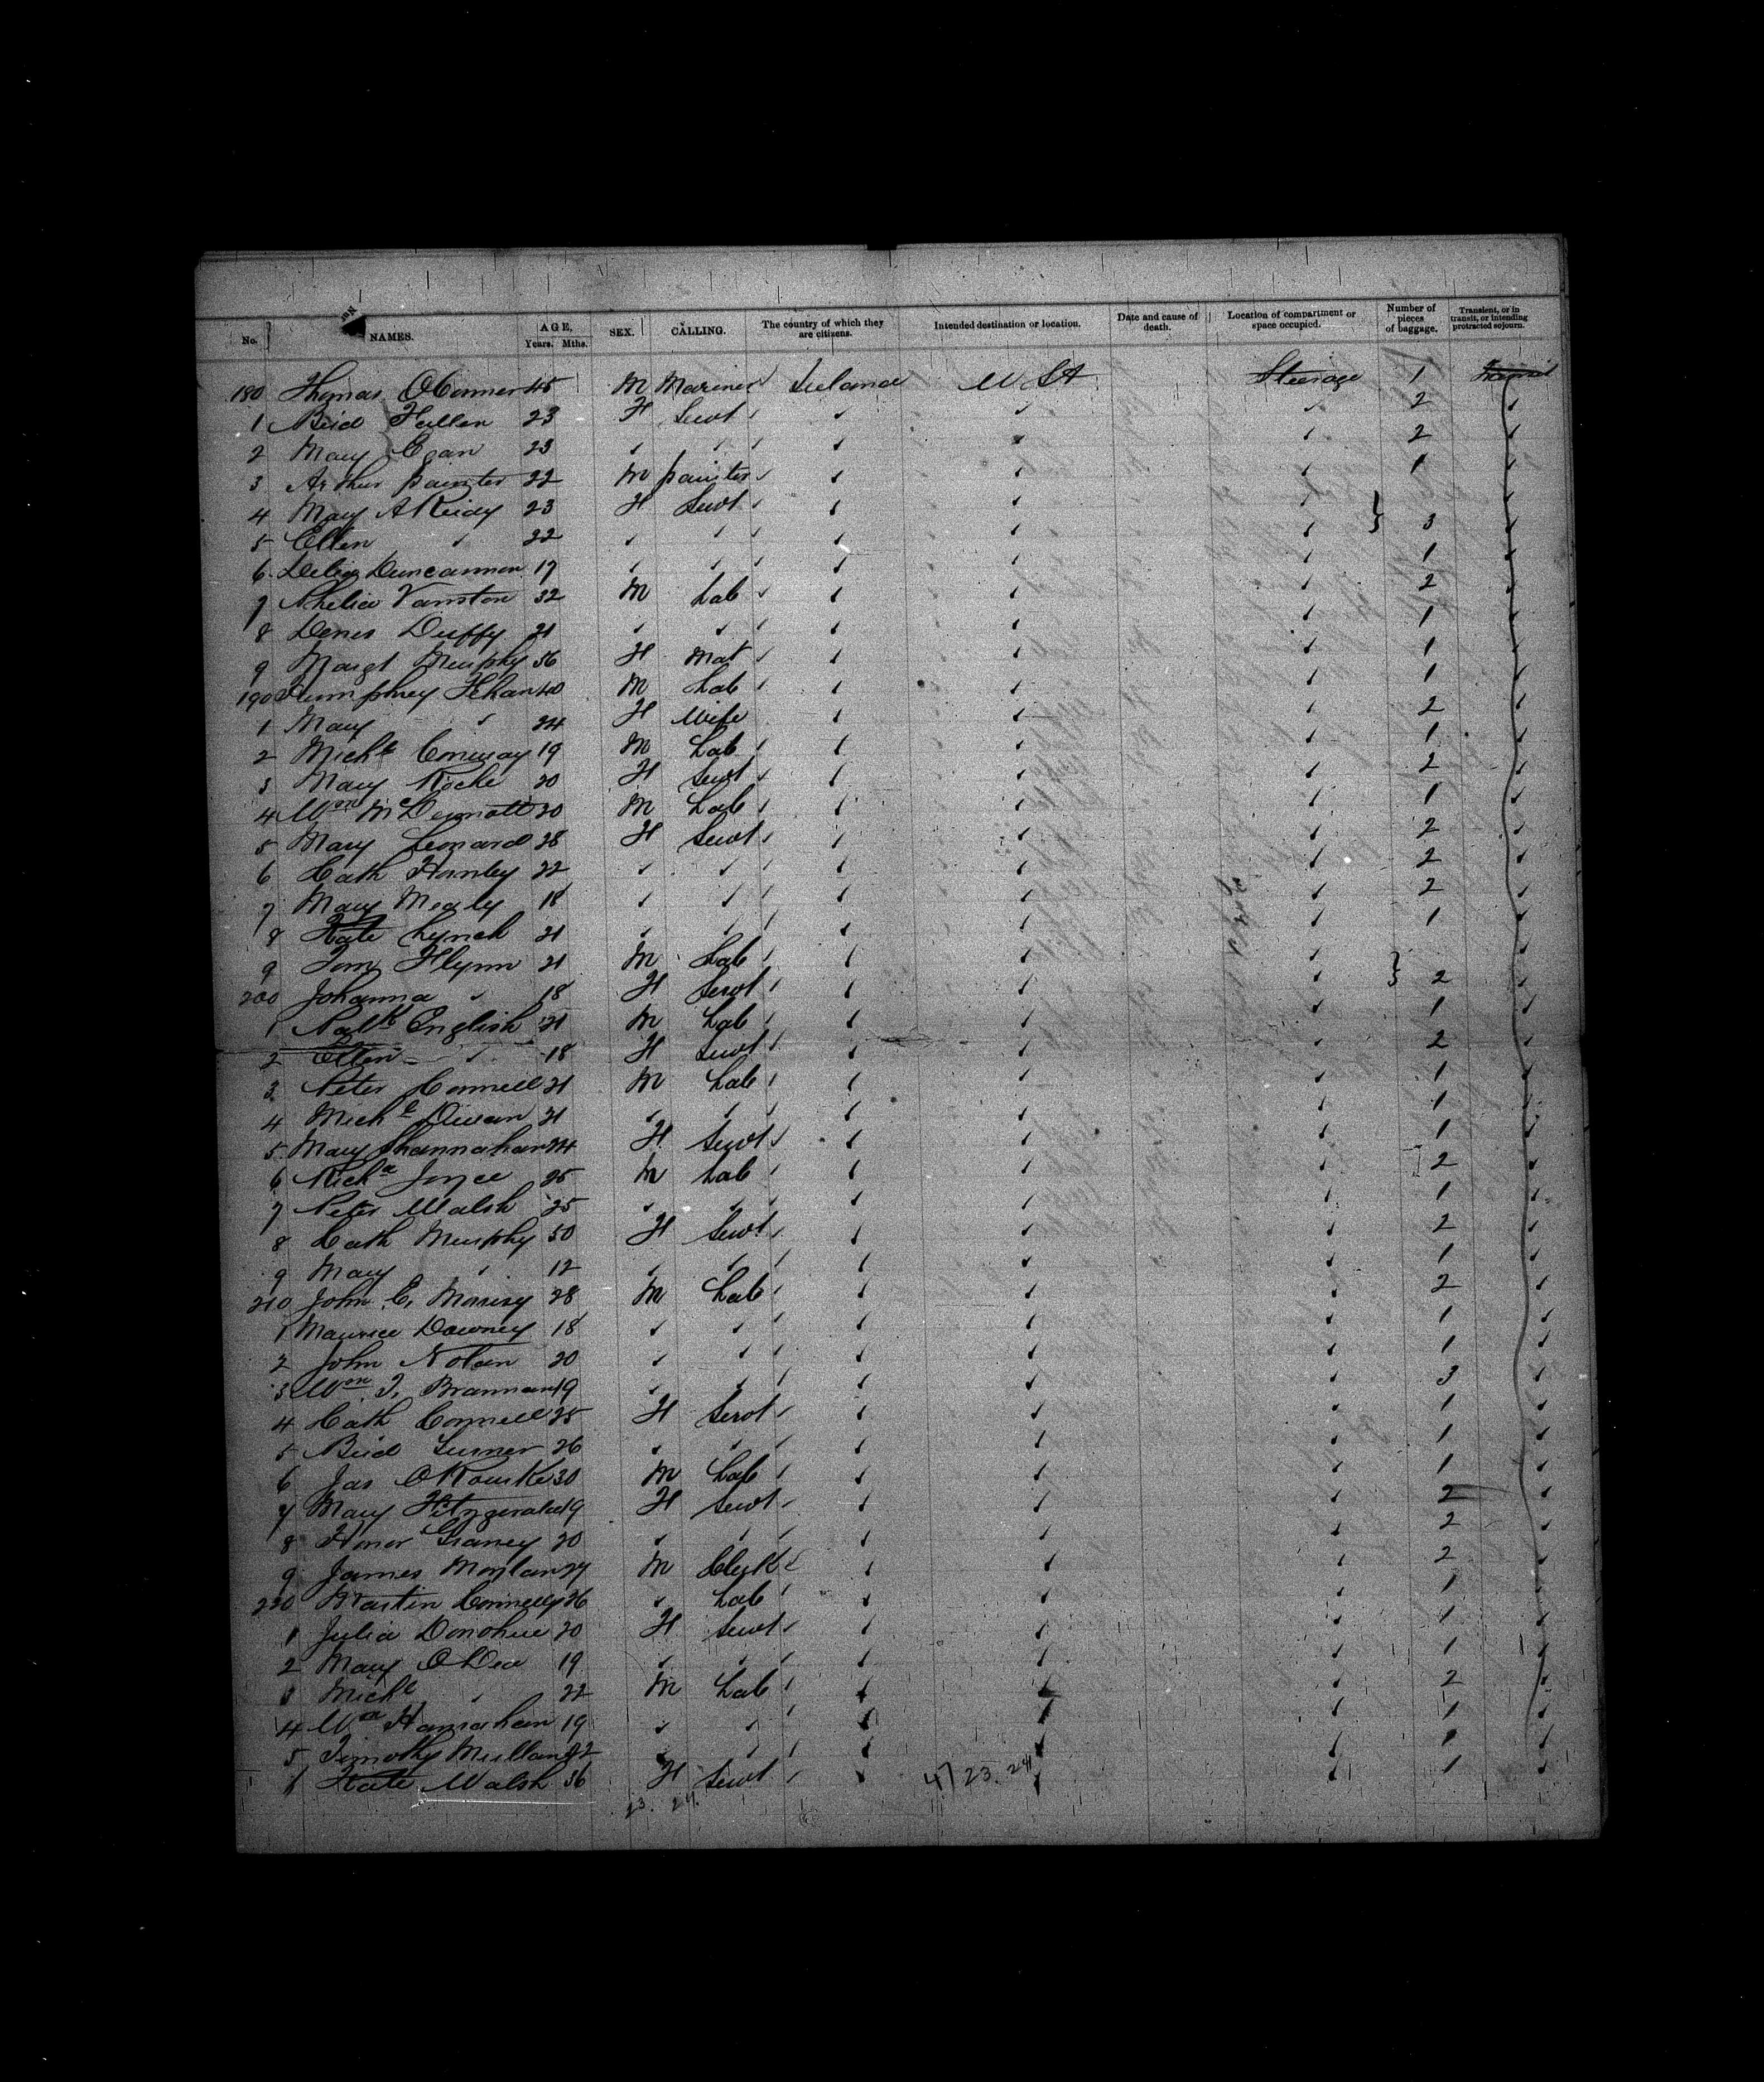 No. NAMES. AGE, Years. Mths. SEX. CALLING. The country of which they are citizens. Intended destination or location. Date and cause of death. Location of compartment or space occupied. Number of pieces of baggage. Transient, or in transit, or intending protracted sojourn.
180 Thomas OConnor 45 M Mariner Ireland U St Steerage 1
1 Brid Fallen 23 F Servt 2
2 Mary Egan 23 2
3 Arthur painter 22 M painter 1
4 Mary A Reidy 23 F Servt
5 Ellen 22 3
6 Delia Duncannon 17 1
7 Vanston 32 M Lab 2
8 Denis Duffy 21 1
9 Margt Murphy 56 F Mat 1
190 Humphrey Fehan 40 M Lab 1
1 Mary 24 F Wife 2
2 Michl Conway 19 M Lab 1
3 Mary Roche 20 F Servt 2
4 Wm McDermott 20 M Lab 1
5 Mary Leonard 28 F Servt 2
6 Cath Hornley 22 2
7 Mary Mealy 18 2
8 Kate Lynch 21 1
9 Tom Flynn 21 M Lab
200 Johanna 18 F Servt 2
1 Patk English 21 M Lab 1
2 Ellen 18 F Servt 2
3 Peter Connell 21 M Lab 1
4 Michl Divan 21 1
5 Mary Shannahan 24 F Servt 1
6 Richd Joyce 25 M Lab 2
7 Peter Walsh 25 1
8 Cath Murphy 50 F Servt 2
9 Mary 12 1
210 John E, Morisy 28 M Lab 2
1 Maurice Downey 18 1
2 John Nolan 20 1
3 Wm T, Brannan 19 3
4 Cath Connell 25 F Servt 1
5 Brid 26 1
6 Jas ORourke 30 M Lab 1
7 Mary Fitzgerald 19 F Servt 2
8 Honor Graney 20 2
9 James Moylan 27 M Clerk 2
220 Martin Connelly 26 Lab 1
1 Julia Donohue 20 F Servt 1
2 Mary ODea 19 1
3 Michl 22 M Lab 2
4 Wm Hanrahan 19 1
5 Timothy Mullan 1
6 Kate Walsh 36 F Servt 1
4/ 23. 24
23. 24.